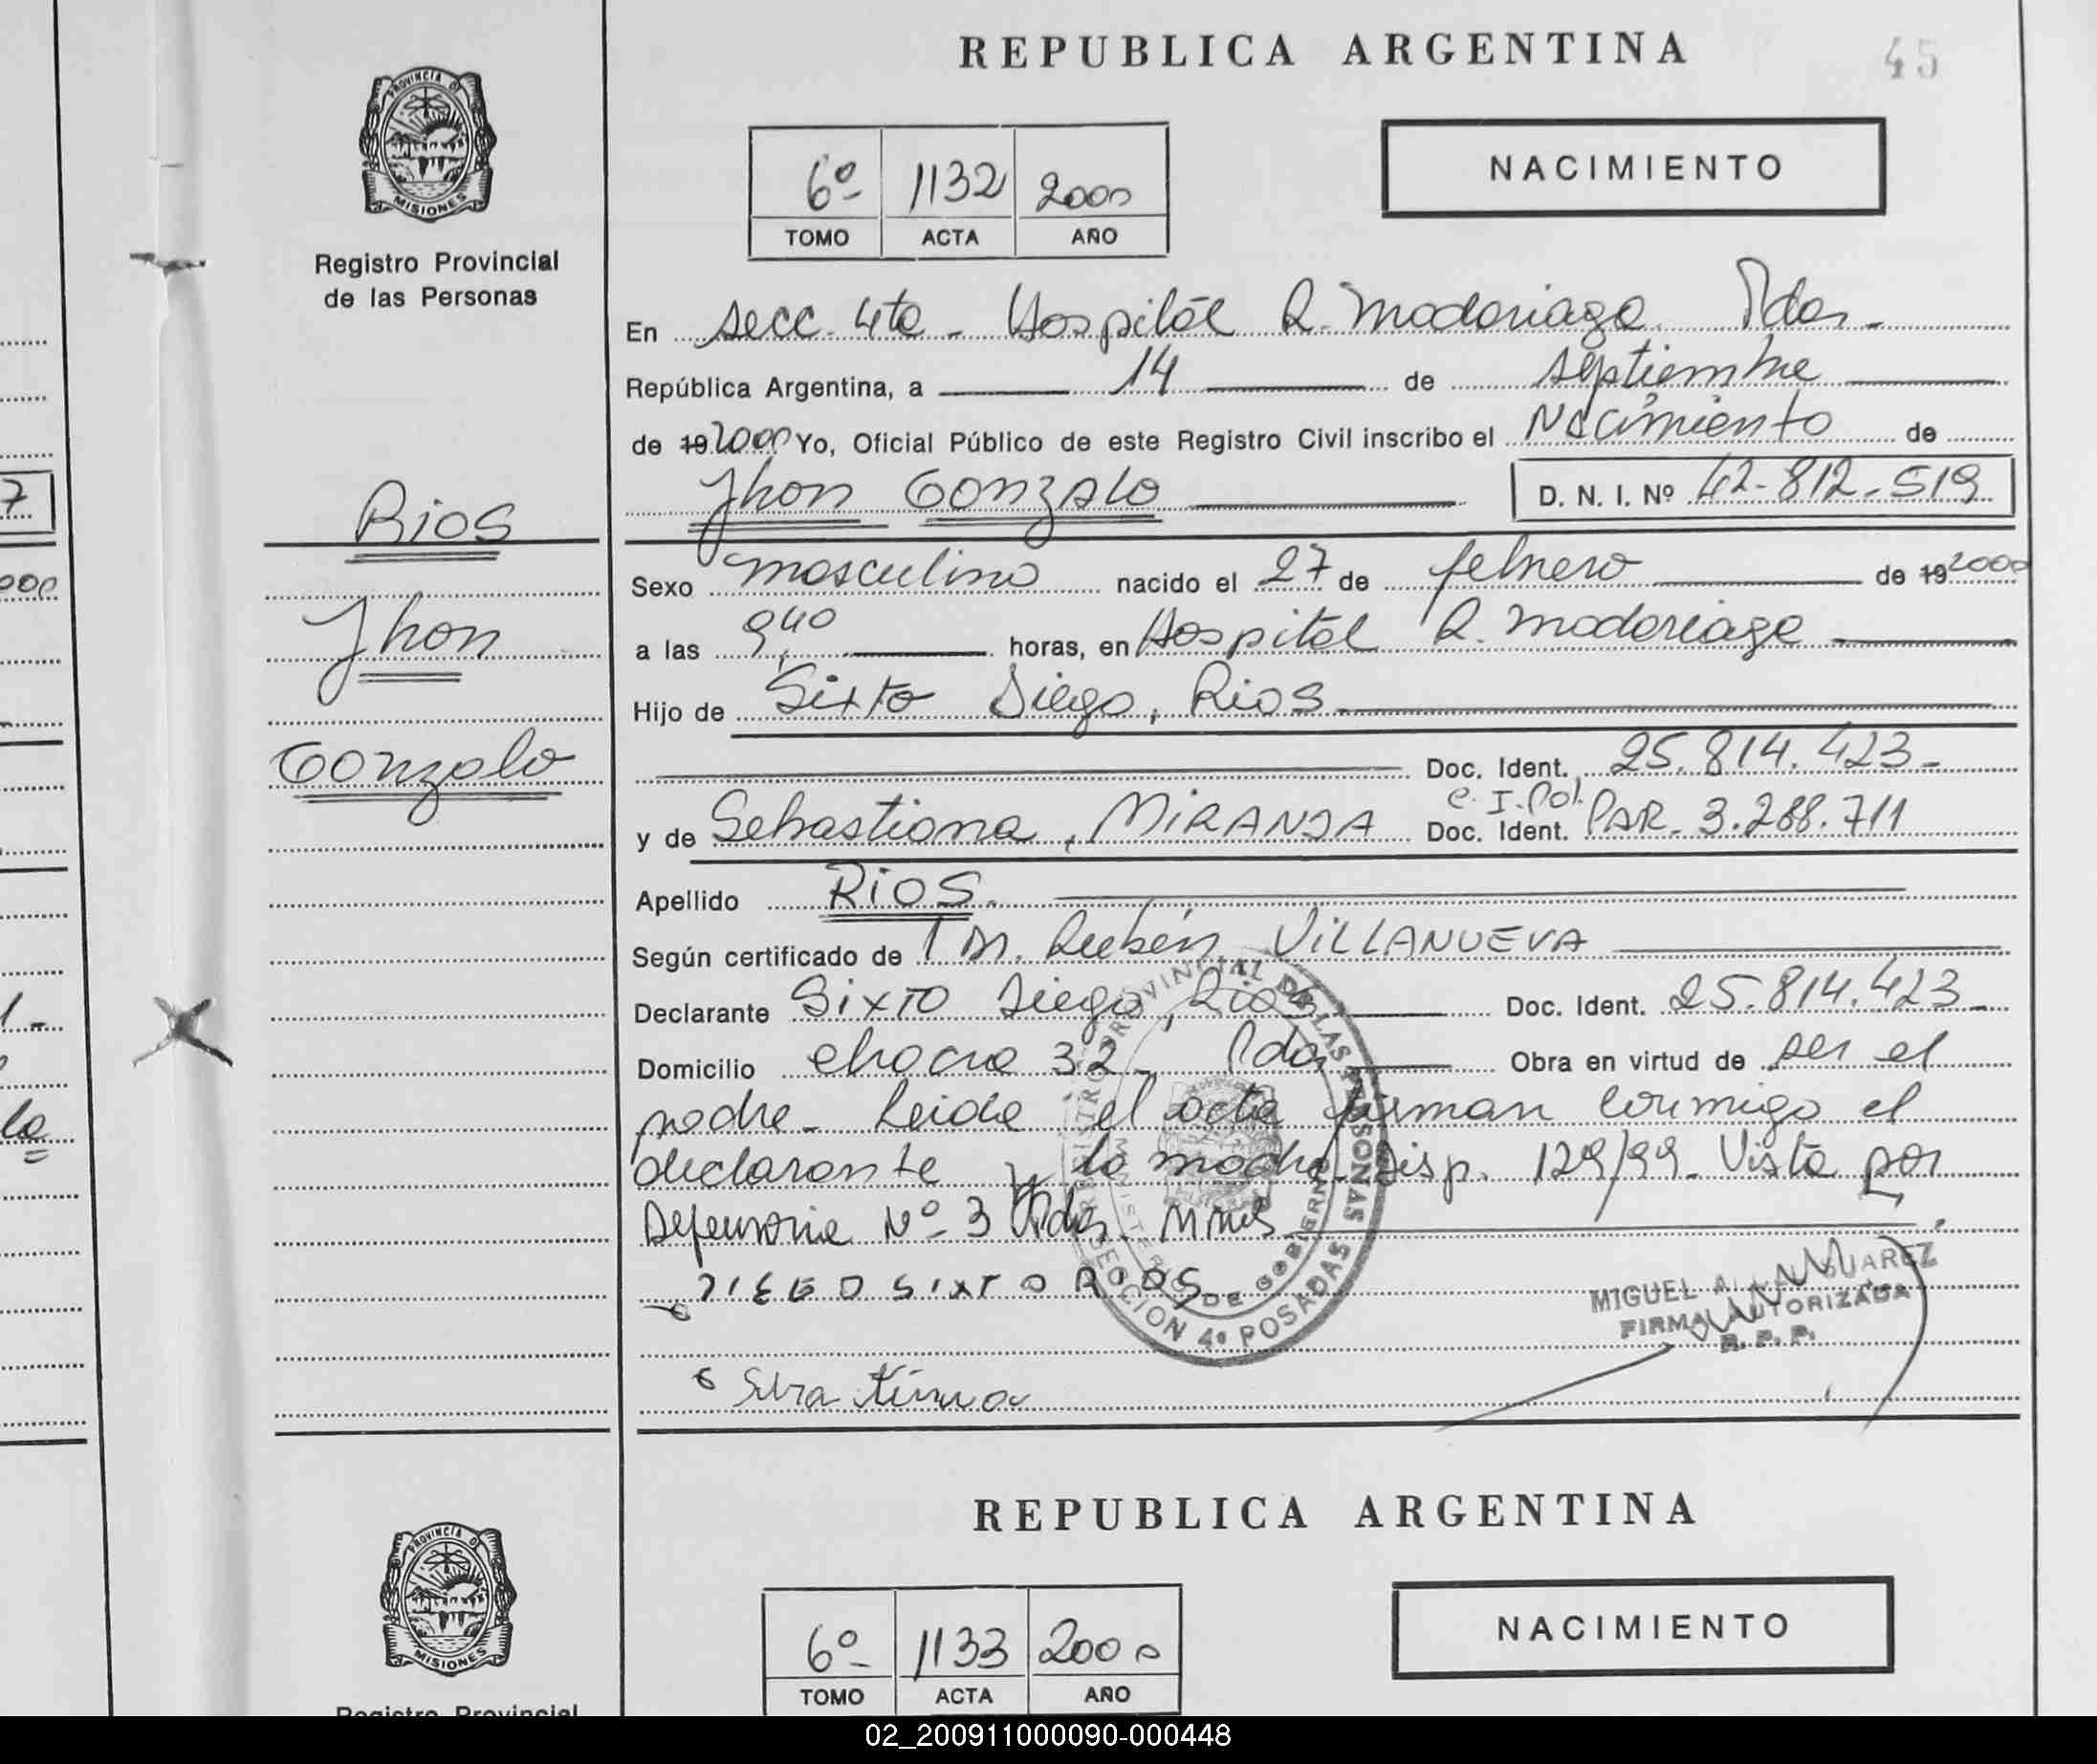 REPUBLICA ARGENTINA
45
PROVINCIA DE
MISIONES
Registro Provincial
de las Personas
6º 1132 2000
TOMO ACTA AÑO
NACIMIENTO
En secc. 4ta - Hospital R. Madariaga Pdas -
República Argentina, a 14 de septiembre
de 19 2000 Yo, Oficial Público de este Registro Civil inscribo el Nacimiento de
Jhon Gonzalo D. N. I. Nº 42-812-519
Rios
Jhon
Gonzalo
Sexo masculino nacido el 27 de febrero de 19 2000
a las 9,40 horas, en Hospital R. Madariaga
Hijo de Sixto Diego, Rios
Doc. Ident. 25.814.423-
C. I. Pol.
y de Sebastiana, MIRANDA Doc. Ident. PAR. 3.288.711
Apellido RIOS.
Según certificado de Dr. Rubén VILLANUEVA
Declarante Sixto Diego, Rios Doc. Ident. 25.814.423-
Domicilio chacra 32 - Pdas Obra en virtud de ser el
padre - Leida el acta firman conmigo el
declarante y la madre. Disp. 129/99 - Vista por
Defensoria Nº 3 Pdas. Mnes.
DIEGO SIXTO RIOS
REGISTRO PROVINCIAL DE LAS PERSONAS
MINISTERIO DE GOBIERNO
SECCION 4º POSADAS
MIGUEL A. SUAREZ
FIRMA AUTORIZADA
R. P. P.
REPUBLICA ARGENTINA
PROVINCIA DE
MISIONES
6º 1133 2000
TOMO ACTA AÑO
NACIMIENTO
Registro Provincial
7
000
1-
la
02_200911000090-000448